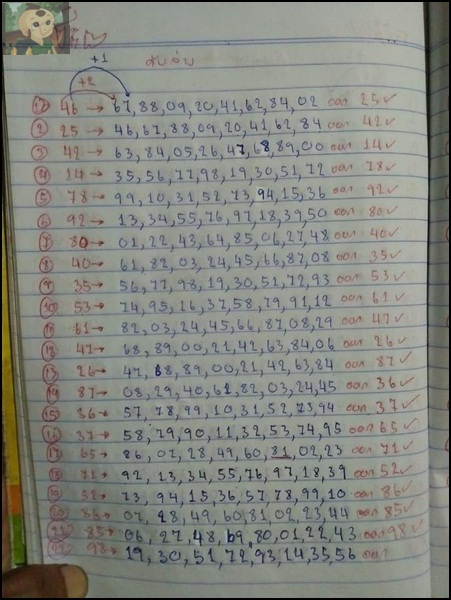 +1
+2
① 46 → 67,88,09,20,41,62,84,02 ออก 25✓
② 25 → 46,67,88,09,20,41,62,84 ออก 42✓
③ 42 → 63,84,05,26,47,68,89,00 ออก 14✓
④ 14 → 35,56,77,98,19,30,51,72 ออก 78✓
⑤ 78 → 99,10,31,52,73,94,15,36 ออก 92✓
⑥ 92 → 13,34,55,76,97,18,39,50 ออก 80✓
⑦ 80 → 01,22,43,64,85,06,27,48 ออก 40✓
⑧ 40 → 61,82,03,24,45,66,87,08 ออก 35✓
⑨ 35 → 56,77,98,19,30,51,72,93 ออก 53✓
⑩ 53 → 74,95,16,37,58,79,91,12 ออก 61✓
⑪ 61 → 82,03,24,45,66,87,08,29 ออก 47✓
⑫ 47 → 68,89,00,21,42,63,84,06 ออก 26✓
⑬ 26 → 47,68,89,00,21,42,63,84 ออก 87✓
⑭ 87 → 08,29,40,61,82,03,24,45 ออก 36✓
⑮ 36 → 57,78,99,10,31,52,73,94 ออก 37✓
⑯ 37 → 58,79,90,11,32,53,74,95 ออก 65✓
⑰ 65 → 86,07,28,49,60,81,02,23 ออก 71✓
⑱ 71 → 92,13,34,55,76,97,18,39 ออก 52✓
⑲ 52 → 73,94,15,36,57,78,99,10 ออก 86✓
⑳ 86 → 07,28,49,60,81,02,23,44 ออก 85✓
㉑ 85 → 06,27,48,69,80,01,22,43 ออก 98✓
㉒ 98 → 19,30,51,72,93,14,35,56 ออก